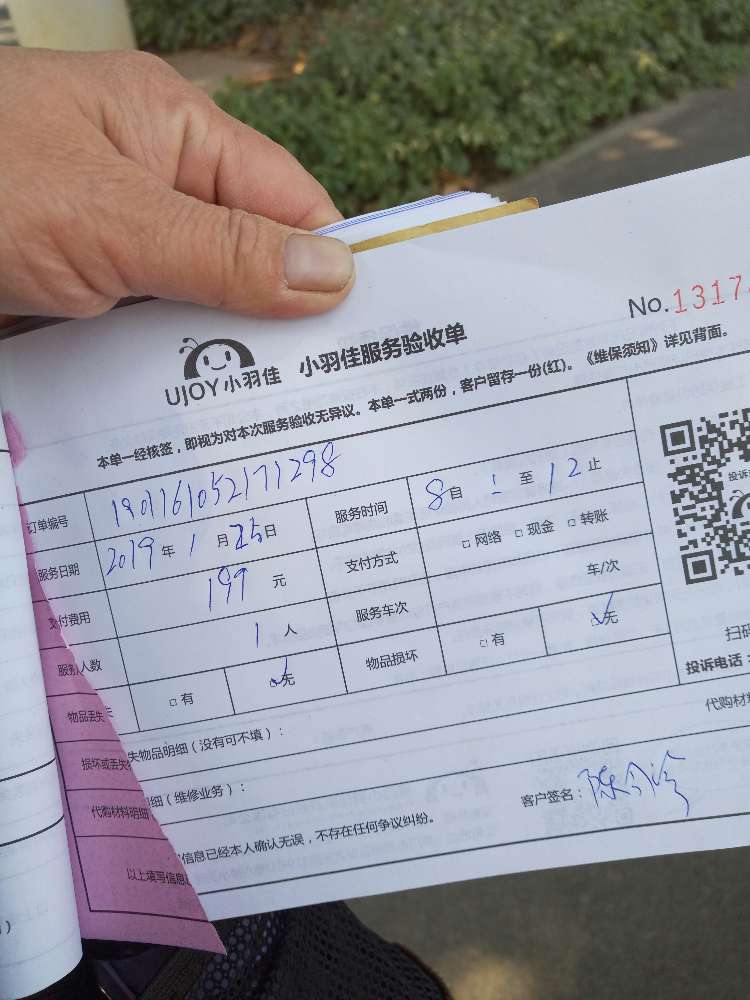 No.1317
UJOY小羽佳 小羽佳服务验收单
本单一经核签，即视为对本次服务验收无异议。本单一式两份，客户留存一份(红)。《维保须知》详见背面。
订单编号 1901161052171298
服务日期 2019年1月25日 服务时间 8自：至12止
支付费用 199元 支付方式 □网络 □现金 □转账
服务人数 1人 服务车次 车/次
物品丢失 □有 □无 物品损坏 □有 □无
扫码
投诉电话
损坏或丢失 失物品明细（没有可不填）：
代购材
代购材料明细 明细（维修业务）：
客户签名：
以上填写信息 信息已经本人确认无误，不存在任何争议纠纷。